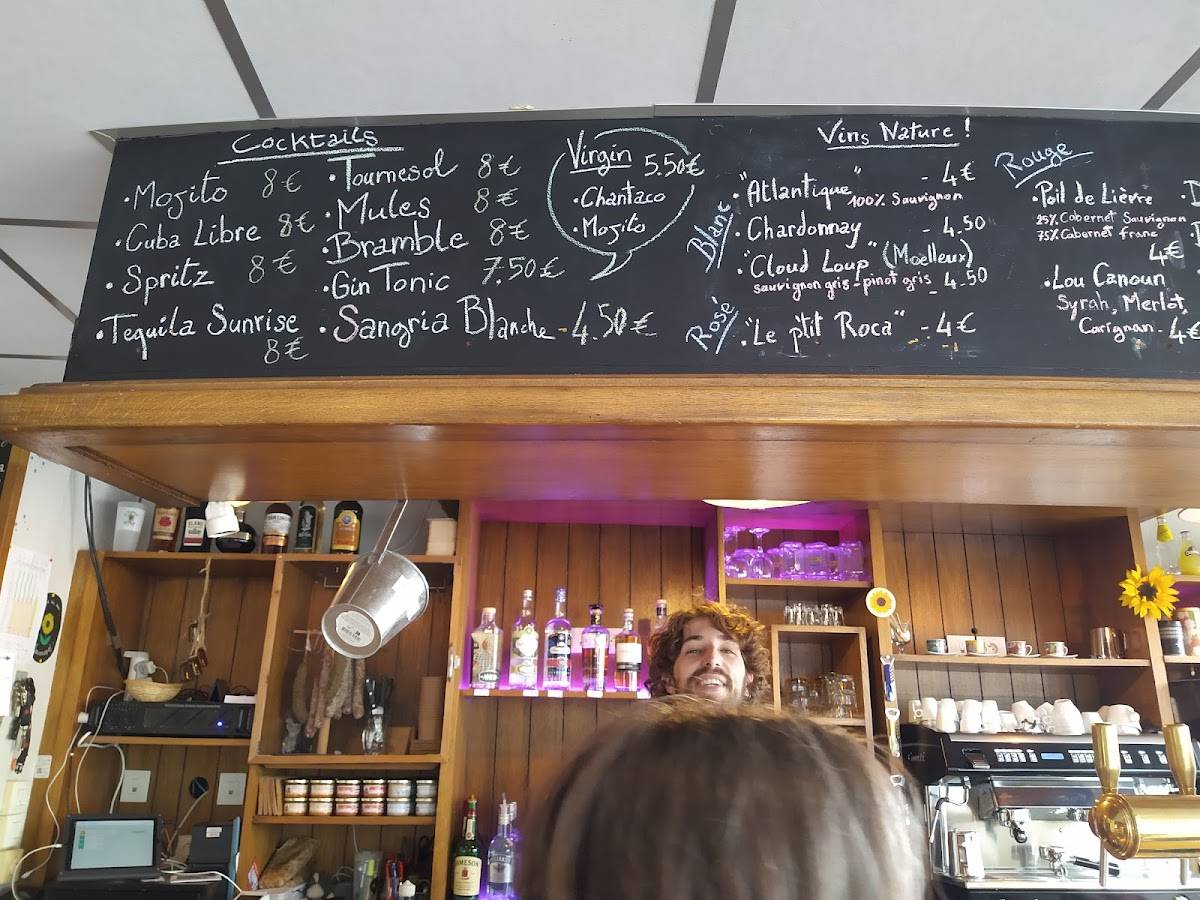 Cocktails
• Mojito 8€
• Cuba Libre 8€
• Spritz 8€
• Tequila Sunrise
8€
• Tournesol 8€
• Mules 8€
• Bramble 8€
• Gin Tonic 7.50€
• Sangria Blanche - 4.50€
Virgin 5.50€
• Chantaco
• Mojito
Vins Nature !
Blanc
• "Atlantique" - 4€
100% Sauvignon
• Chardonnay - 4.50
• "Cloud Loup" (Moelleux)
sauvignon gris - pinot gris - 4.50
Rosé
• "Le p'tit Roca" - 4€
Rouge
• Poil de Lièvre
25% Cabernet Sauvignon
75% Cabernet franc
4€
• Lou Canoun
Syrah, Merlot,
Carignan - 4€
JAMESON